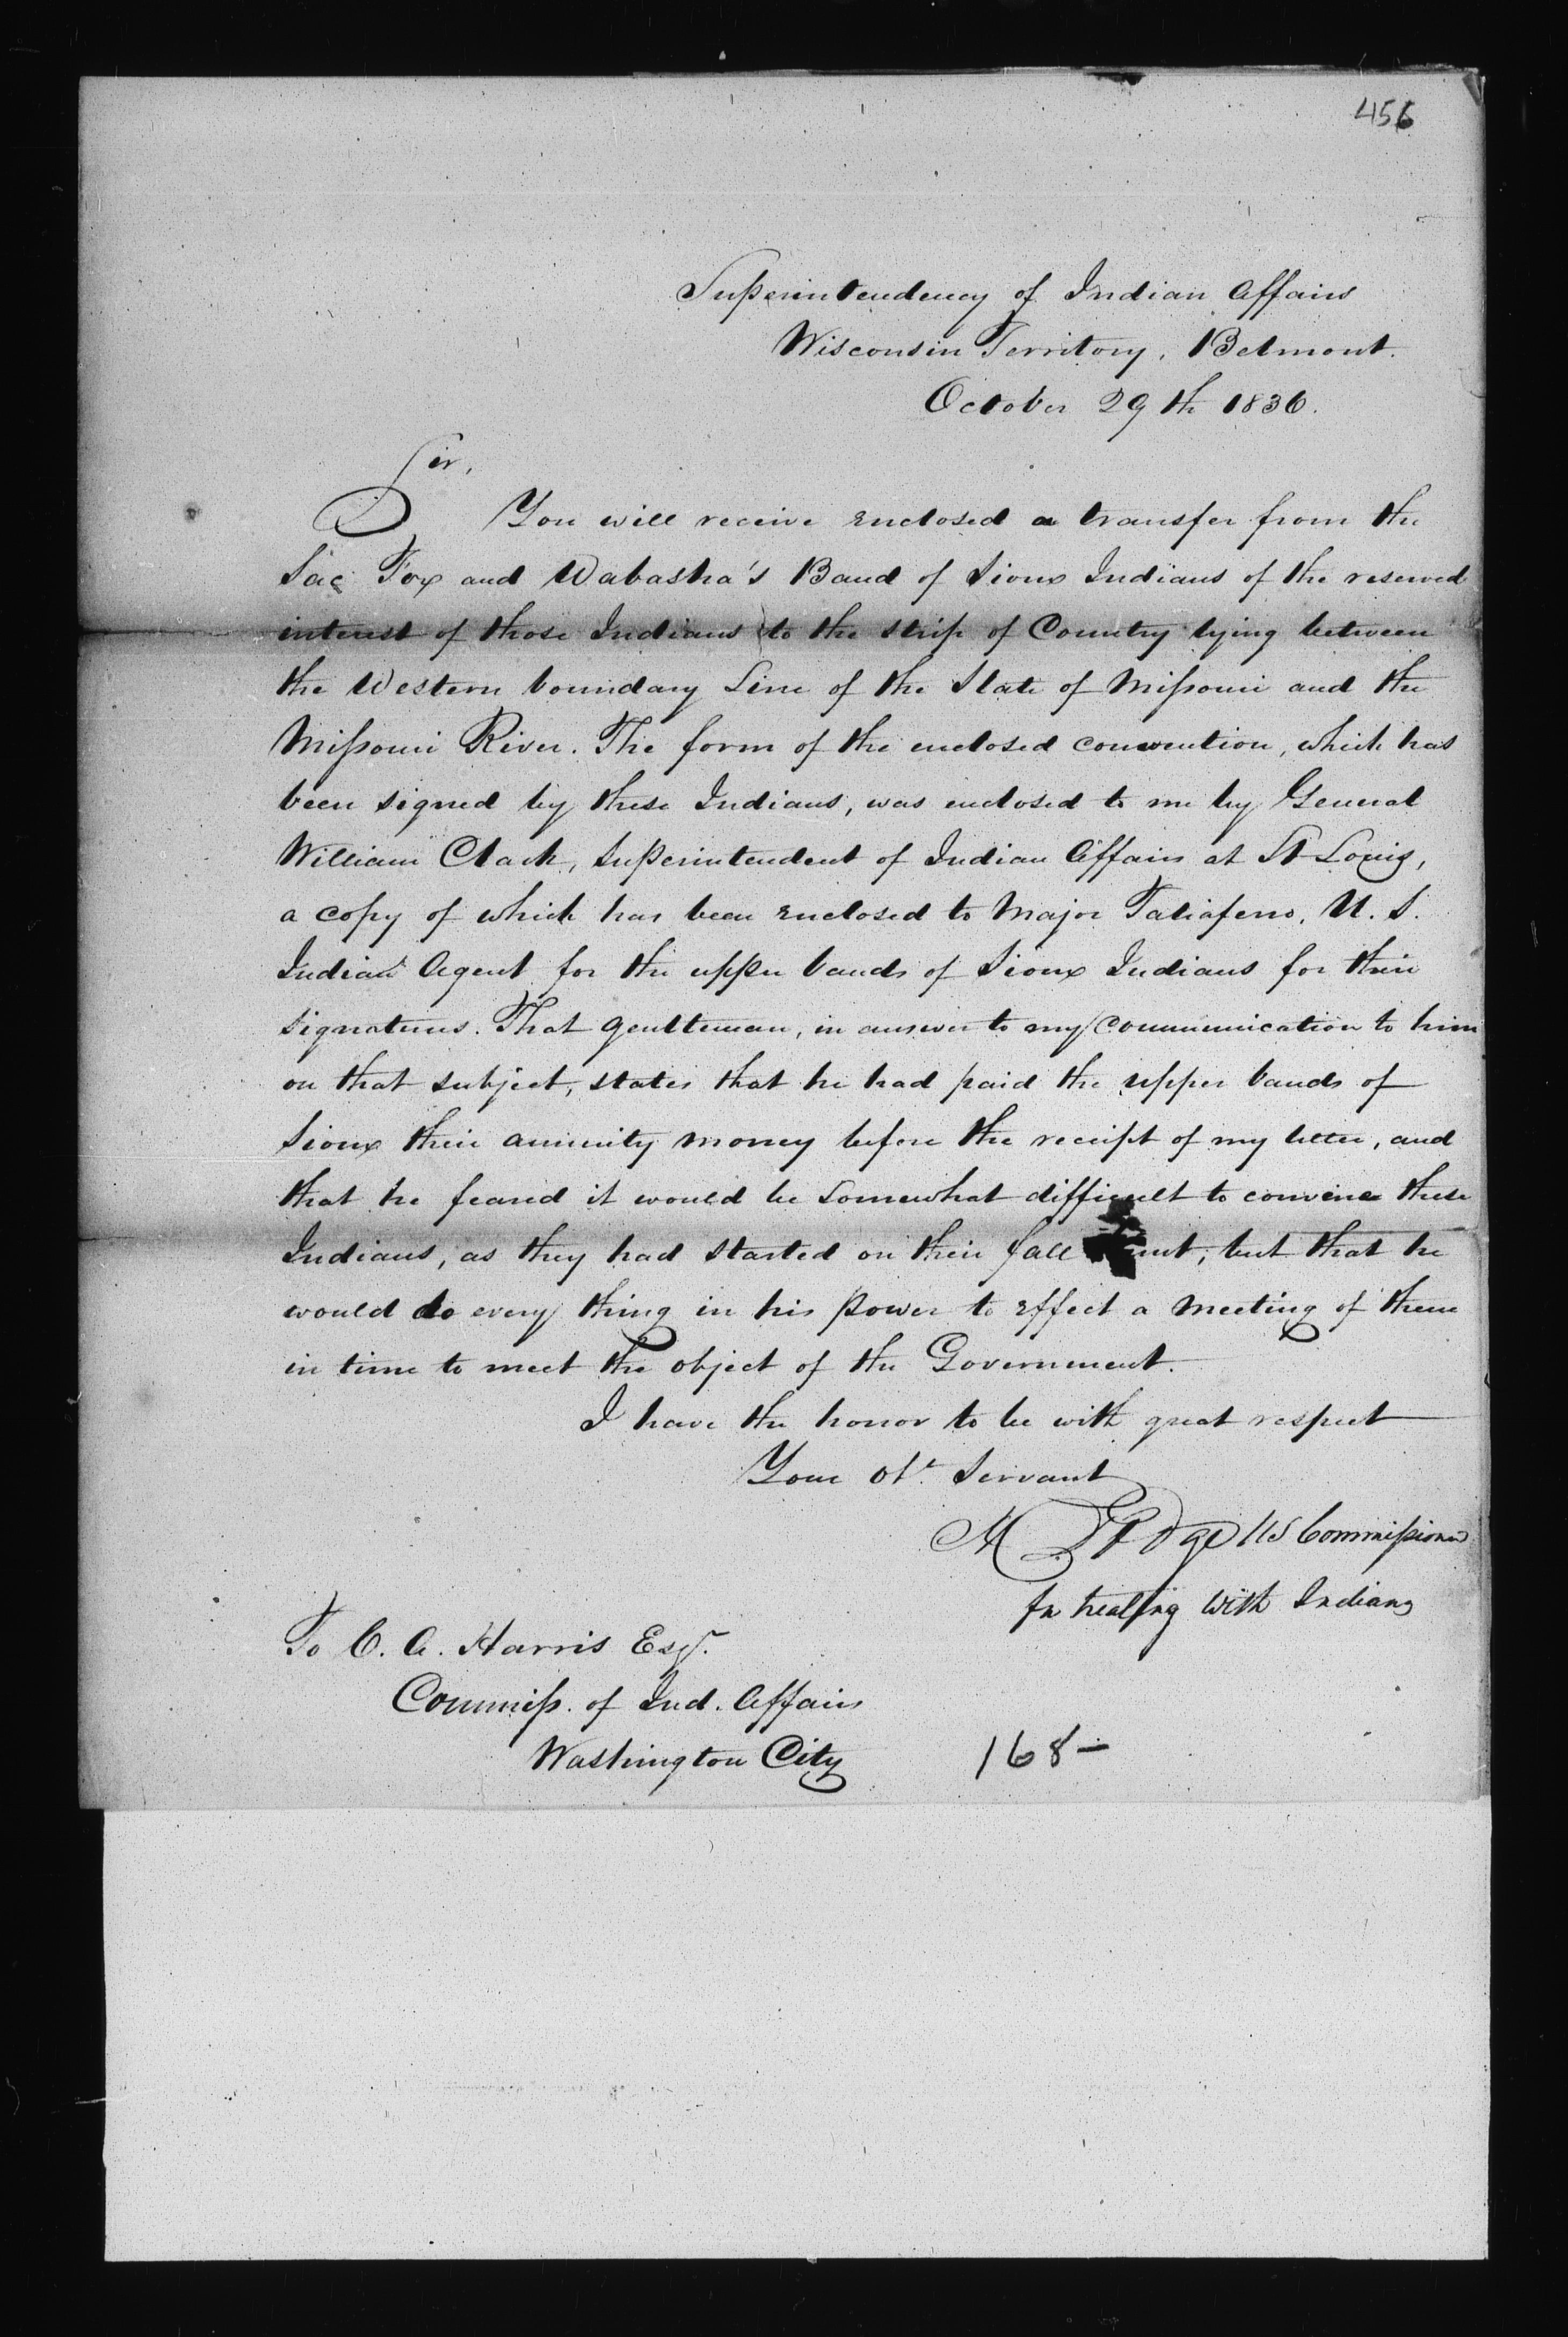 456
Superintendency of Indian Affairs
Wisconsin Territory, Belmont.
October 29th 1836.
Sir,
You will receive enclosed a transfer from the
Sac Fox and Wabasha's Band of Sioux Indians of the reserved
interest of those Indians to the strip of Country lying between
the Western boundary Line of the State of Missouri and the
Missouri River. The form of the enclosed convention, which has
been signed by these Indians, was enclosed to me by General
William Clark, Superintendent of Indian Affairs at St Louis,
a copy of which has been enclosed to Major Taliaferro, U. S.
Indian Agent for the upper bands of Sioux Indians for their
signatures. That gentleman, in answer to my communication to him
on that subject, states that he had paid the upper bands of
Sioux their annuity money before the receipt of my letter, and
that he feared it would be somewhat difficult to convene these
Indians, as they had started on their fall unt, but that he
would do every thing in his power to effect a meeting of them
in time to meet the object of the Government.
I have the honor to be with great respect
Your Obt. Servant
H Dodge US Commissioner
for treating with Indians
To C. A. Harris Esqr.
Commiss. of Ind. Affairs
Washington City
168-